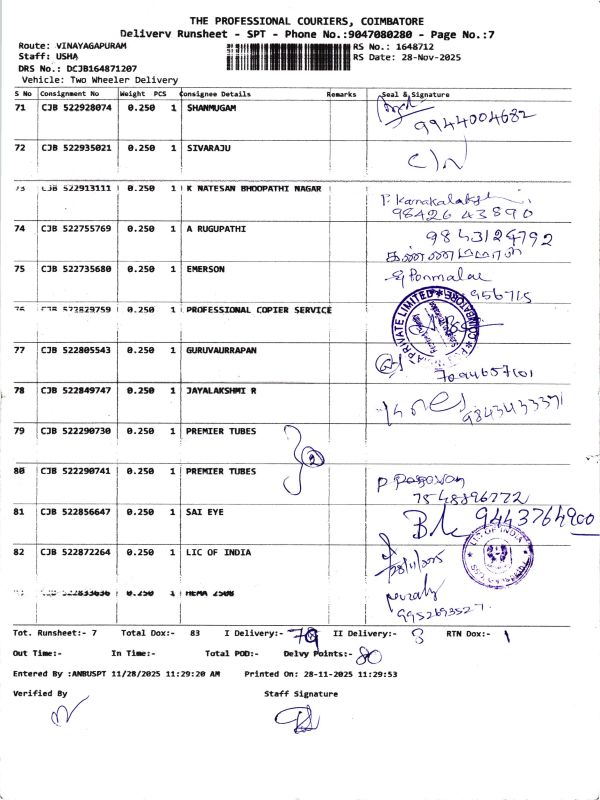 THE PROFESSIONAL COURIERS, COIMBATORE
Delivery Runsheet - SPT - Phone No.:9047080280 - Page No.:7
Route: VINAYAGAPURAM RS No.: 1648712
Staff: USHA RS Date: 28-Nov-2025
DRS No.: DCJB164871207
Vehicle: Two Wheeler Delivery
S No Consignment No Weight PCS Consignee Details Remarks Seal & Signature
71 CJB 522928074 0.250 1 SHANMUGAM
9944004682
72 CJB 522935021 0.250 1 SIVARAJU
C/N
73 CJB 522913111 0.250 1 K NATESAN BHOOPATHI NAGAR
98426 43890
74 CJB 522755769 0.250 1 A RUGUPATHI
9843124792
75 CJB 522735680 0.250 1 EMERSON
956715
76 CJB 522829759 0.250 1 PROFESSIONAL COPIER SERVICE
PRIVATE LIMITED
77 CJB 522805543 0.250 1 GURUVAURRAPAN
78 CJB 522849747 0.250 1 JAYALAKSHMI R
79 CJB 522290730 0.250 1 PREMIER TUBES
2
80 CJB 522290741 0.250 1 PREMIER TUBES
7548896772
81 CJB 522856647 0.250 1 SAI EYE
9443764900
82 CJB 522872264 0.250 1 LIC OF INDIA
LIC OF INDIA
28/11/2025
0.250 1 HEMA
Tot. Runsheet:- 7 Total Dox:- 83 I Delivery:- 79 II Delivery:- 3 RTN Dox:- 1
Out Time:- In Time:- Total POD:- Delvy Points:- 80
Entered By :ANBUSPT 11/28/2025 11:29:20 AM Printed On: 28-11-2025 11:29:53
Verified By Staff Signature